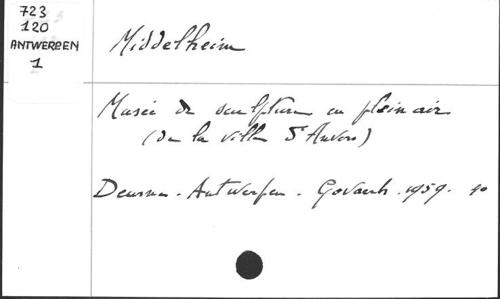 723
120
ANTWERPEN
1
Middelheim
Musée de sculpture en plein air
(de la ville d'Anvers)
Deurne - Antwerpen - Govaerts. 1959.